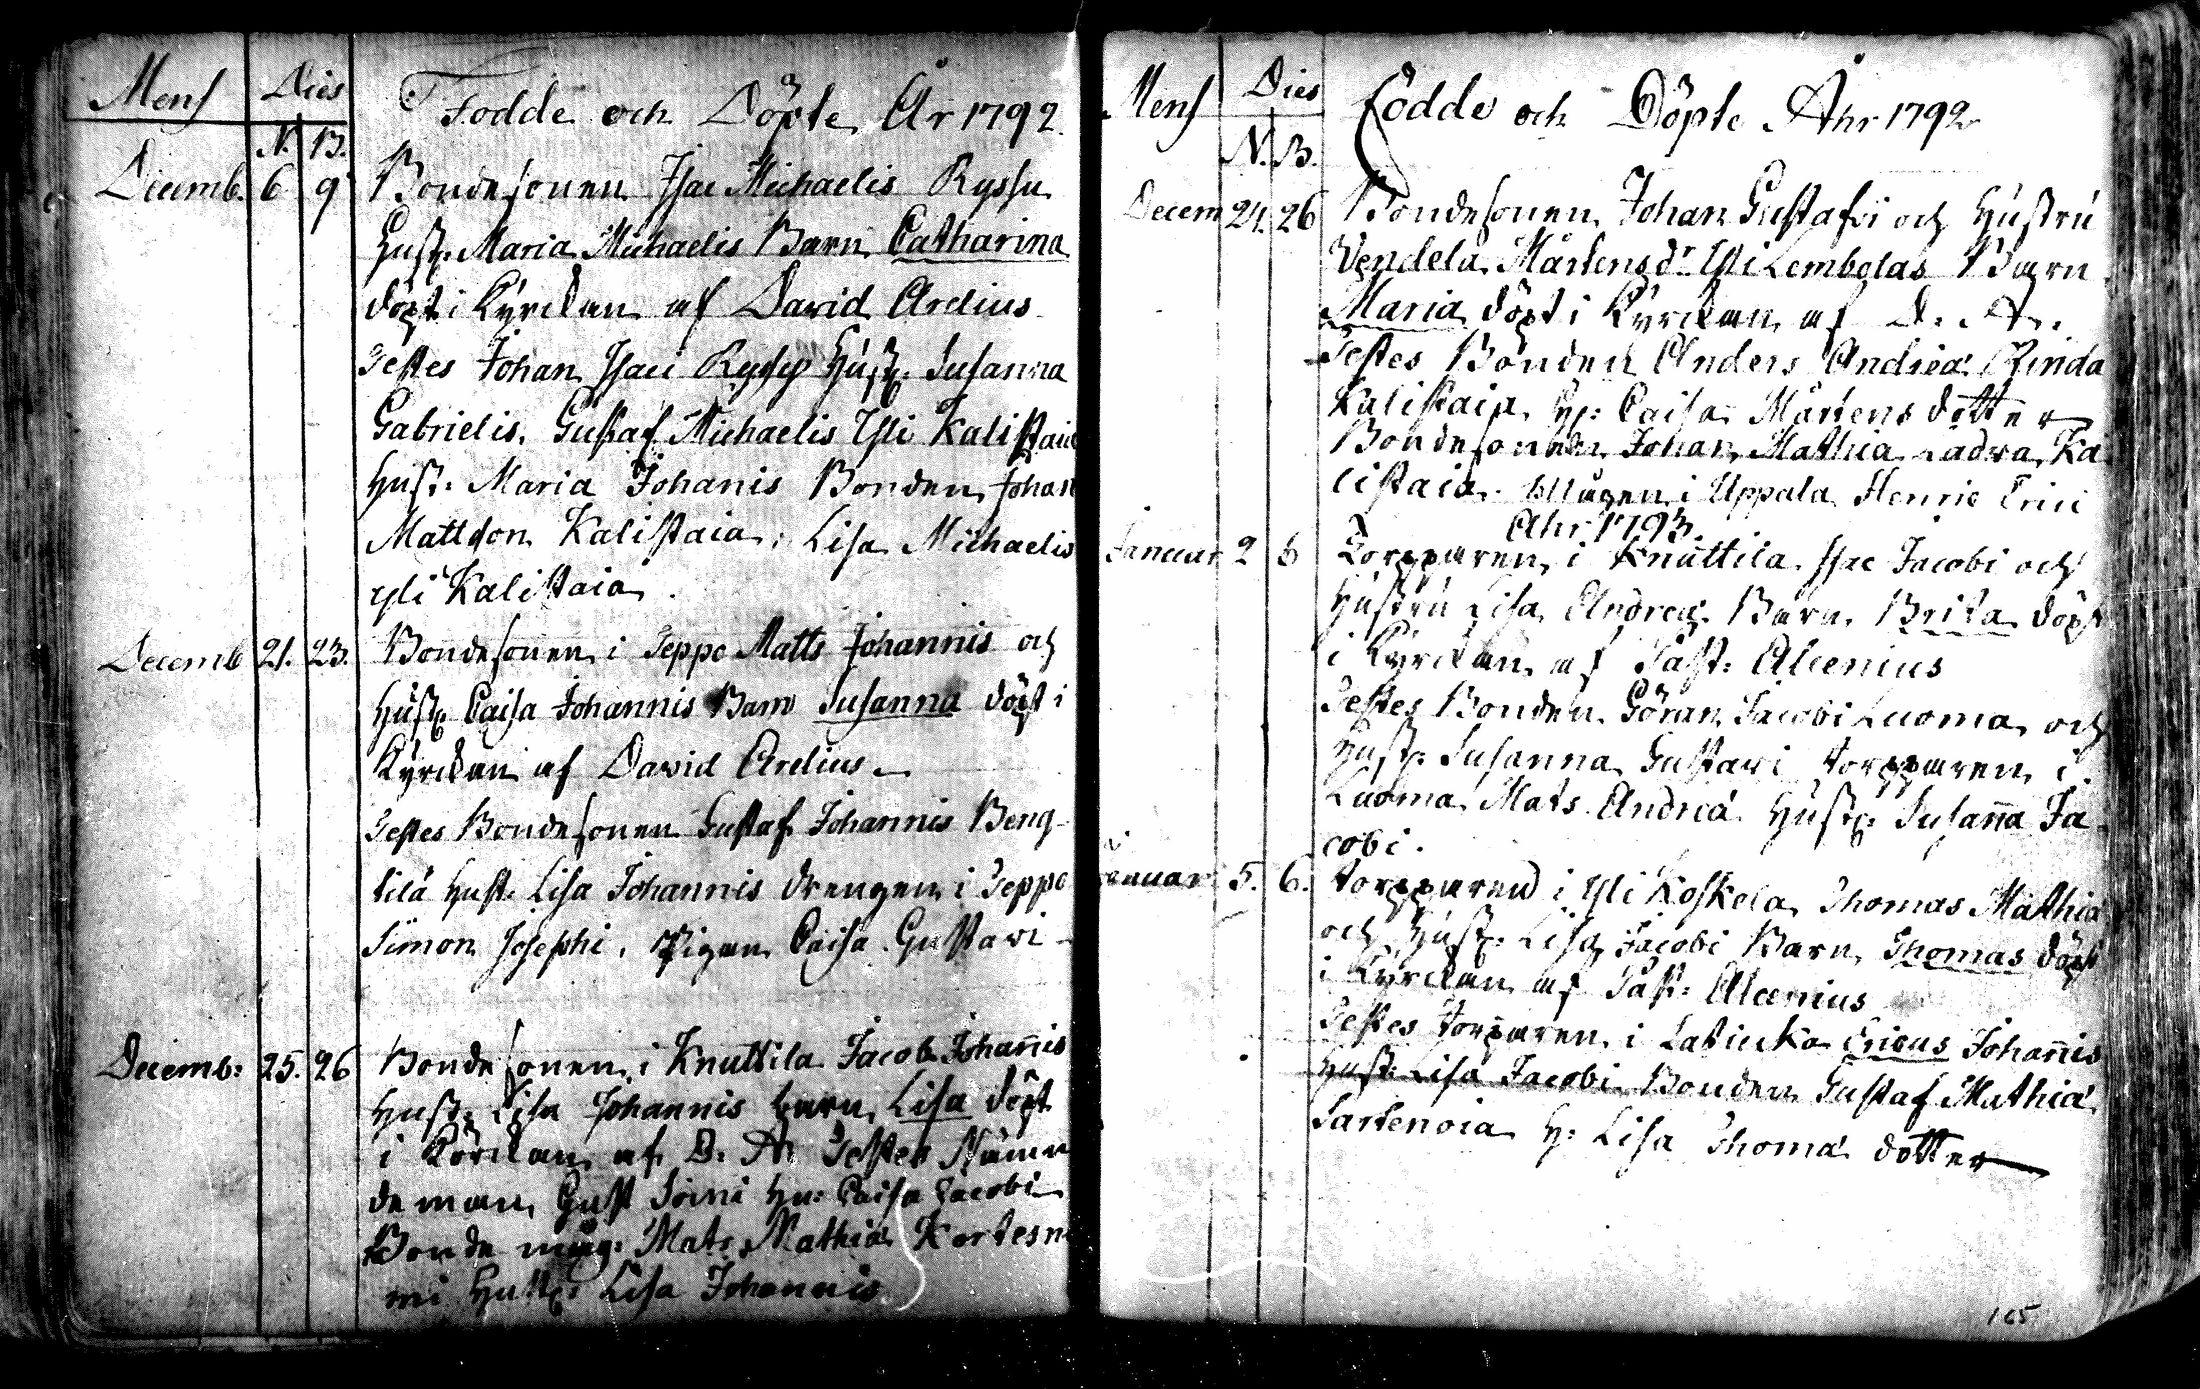 Mens Dies Födde och Döpte År 1792.
N. B.
Decemb. 6 9 Bondesonen Isac Michaelis Ryssu
Hust. Maria Michaelis Barn Catharina
döpt i Kyrckan af David Arelius
Testes Johan Isaci Hust. Susanna
Gabrielis. Gustaf Michaelis Yli Kalistaia
Hust. Maria Johanis Bonden Johan
Mattson Kalistaia, Lisa Michaelis
yli Kalistaia.
Decemb 21. 23. Bondesonen i Seppe Matts Johannis och
Hust. Caisa Johannis Barn Susanna döpt i
Kyrckan af David Arelius
Testes Bondesonen Gustaf Johannis Beng-
tila hust. Lisa Johannis drengen i Seppe
Simon Josephi, Pigan Caisa Gustavi
Decemb: 25. 26 Bondesonen i Knuttila Jacob Johanis
Hust. Lisa Johannis barn Lisa döpt
i Körckan af D. A. Testes Nämn
deman Gust hu: Caisa Jacobi
Bonde Mats Mathiæ Kortesn
mi Hust: Lisa Johannis
Mens Dies Födde och Döpte Åhr 1792
N. B.
Decem 24. 26 Bondesonen Johan Gustafvi och Hustru
Vendela Mårtensdr Yli Lembolas Barn
Maria döpt i Kyrckan af D. A.
Testes Bonden Anders Andreæ Rinda
Kalistaia, H: Caisa Mårtens dotter
Bondesonen Johan Mathiæ Ladva Ka
listaia. Pigen i Uppala Henric Erici
Åhr 1793.
Januar 2 6 Torpparen i Knuttila Isac Jacobi och
Hustru Lisa Andreæ. Barn. Brita döpt
i Kyrckan af Past: Alcenius
Testes Bonden Göran Jacobi Luoma och
Hust: Susanna Gustavi torpparen i
Luoma Mats Andreæ Hust: Susana Ja
cobi.
Januar 5. 6. Torpparen i Yli Koskela Thomas Mathiæ
och Hust: Lisa Jacobi Barn Thomas döpt
i Kyrckan af Past: Alcenius
Testes Torpparen i Ericus Johanis
Hust: Lisa Jacobi Bonden Gustaf Mathiæ
Sartenoia H: Lisa Thomæ dotter
165